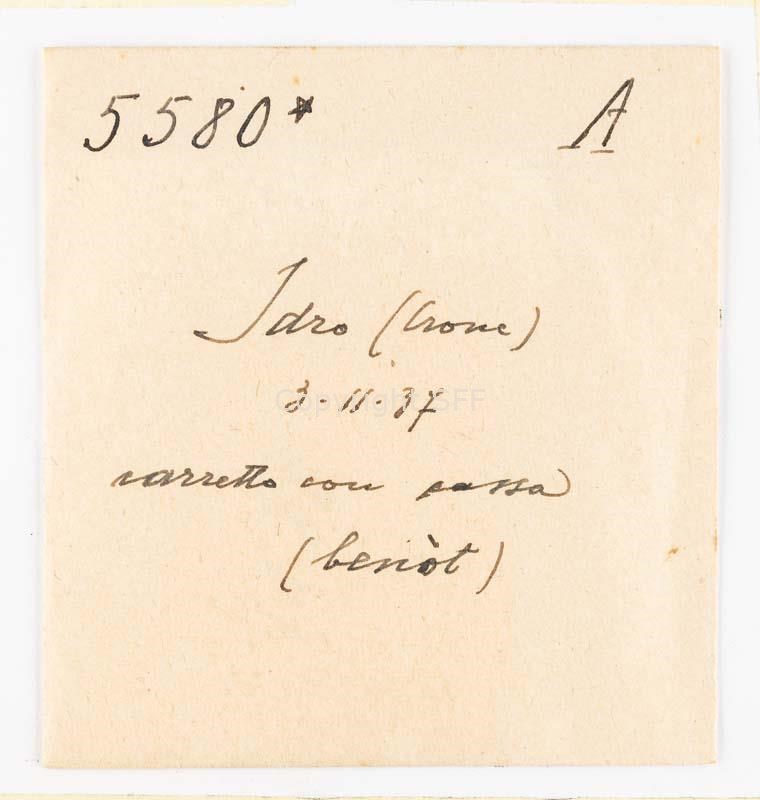 5580* A
Idro (Crone)
3-11-37
Copyright SFF
carretto con cassa
(benòt)